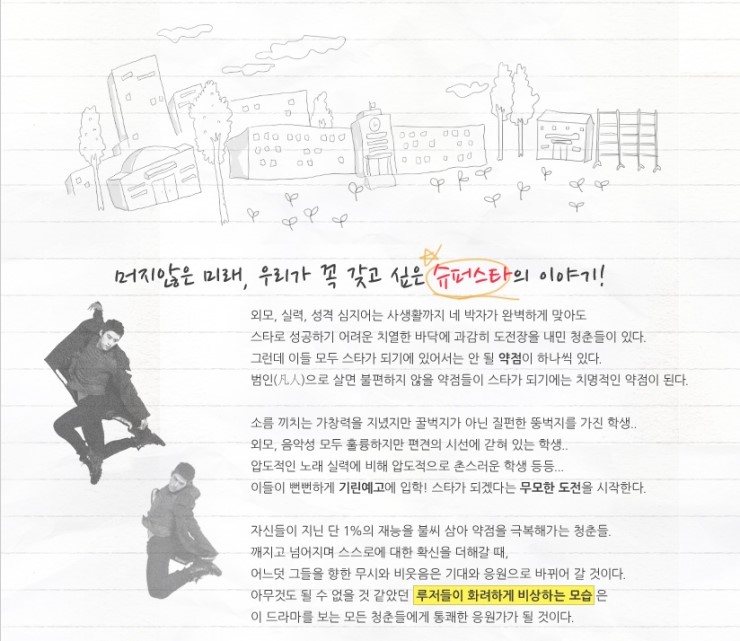 머지않은 미래, 우리가 꼭 갖고 싶은 슈퍼스타의 이야기!
외모, 실력, 성격 심지어는 사생활까지 네 박자가 완벽하게 맞아도
스타로 성공하기 어려운 치열한 바닥에 과감히 도전장을 내민 청춘들이 있다.
그런데 이들 모두 스타가 되기에 있어서는 안 될 약점이 하나씩 있다.
범인(凡人)으로 살면 불편하지 않을 약점들이 스타가 되기에는 치명적인 약점이 된다.
소름 끼치는 가창력을 지녔지만 꿀벅지가 아닌 질펀한 뚱벅지를 가진 학생..
외모, 음악성 모두 훌륭하지만 편견의 시선에 갇혀 있는 학생..
압도적인 노래 실력에 비해 압도적으로 촌스러운 학생 등등...
이들이 뻔뻔하게 기린예고에 입학! 스타가 되겠다는 무모한 도전을 시작한다.
자신들이 지닌 단 1%의 재능을 불씨 삼아 약점을 극복해가는 청춘들.
깨지고 넘어지며 스스로에 대한 확신을 더해갈 때,
어느덧 그들을 향한 무시와 비웃음은 기대와 응원으로 바뀌어 갈 것이다.
아무것도 될 수 없을 것 같았던 루저들이 화려하게 비상하는 모습은
이 드라마를 보는 모든 청춘들에게 통쾌한 응원가가 될 것이다.